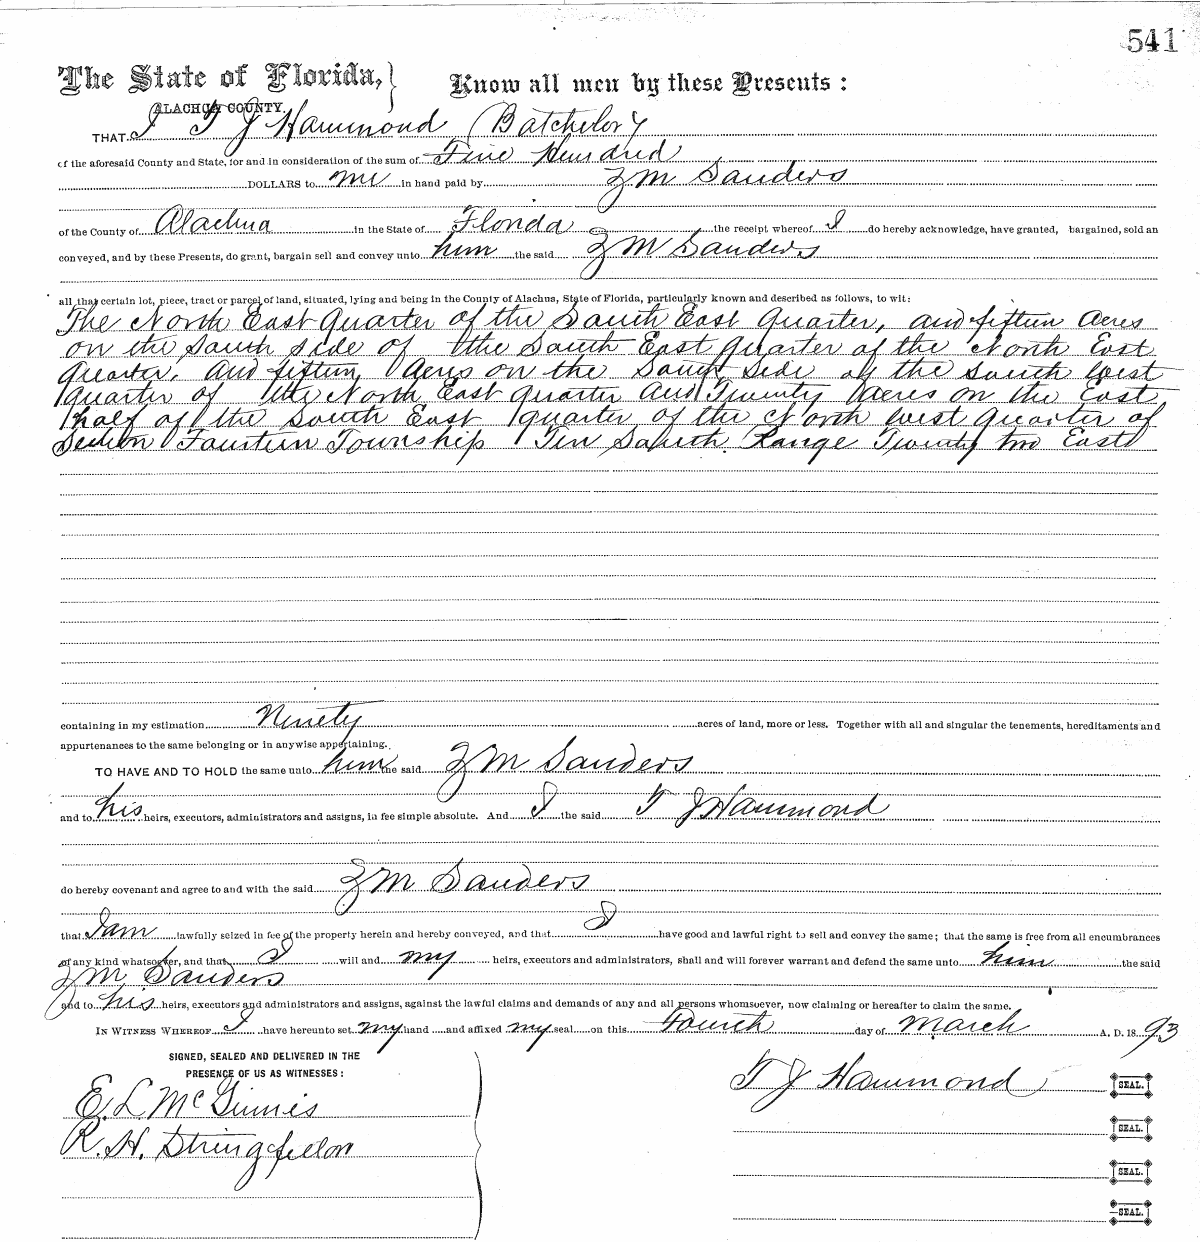 541
The State of Florida, Know all men by these Presents:
ALACHUA COUNTY.
THAT I T J Hammond (Batchelor)
of the aforesaid County and State, for and in consideration of the sum of Five Hundred
DOLLARS to me in hand paid by Z M Sanders
of the County of Alachua in the State of Florida the receipt whereof I do hereby acknowledge, have granted, bargained, sold an
conveyed, and by these Presents, do grant, bargain sell and convey unto him the said Z M Sanders
all that certain lot, piece, tract or parcel of land, situated, lying and being in the County of Alachua, State of Florida, particularly known and described as follows, to wit:
The North East Quarter of the South East Quarter, and fifteen Acres
on the South side of the South East quarter of the North East
quarter. And fifteen Acres on the South Side of the South West
quarter of the North East quarter And Twenty Acres on the East
half of the South East quarter of the North West quarter of
Section Fourteen Township Ten South Range Twenty two East
containing in my estimation Ninety acres of land, more or less. Together with all and singular the tenements, hereditaments and
appurtenances to the same belonging or in anywise appertaining.
TO HAVE AND TO HOLD the same unto him the said Z M Sanders
and to his heirs, executors, administrators and assigns, in fee simple absolute. And I the said T J Hammond
do hereby covenant and agree to and with the said Z M Sanders
that I am lawfully seized in fee of the property herein and hereby conveyed, and that I have good and lawful right to sell and convey the same; that the same is free from all encumbrances
of any kind whatsoever, and that I will and my heirs, executors and administrators, shall and will forever warrant and defend the same unto him the said
Z M Sanders
and to his heirs, executors and administrators and assigns, against the lawful claims and demands of any and all persons whomsoever, now claiming or hereafter to claim the same.
IN WITNESS WHEREOF I have hereunto set my hand and affixed my seal on this Fourth day of March A. D. 1893
SIGNED, SEALED AND DELIVERED IN THE
PRESENCE OF US AS WITNESSES:
T J Hammond SEAL.
E. L. McGinnis
SEAL.
R. H. Stringfellow
SEAL.
SEAL.